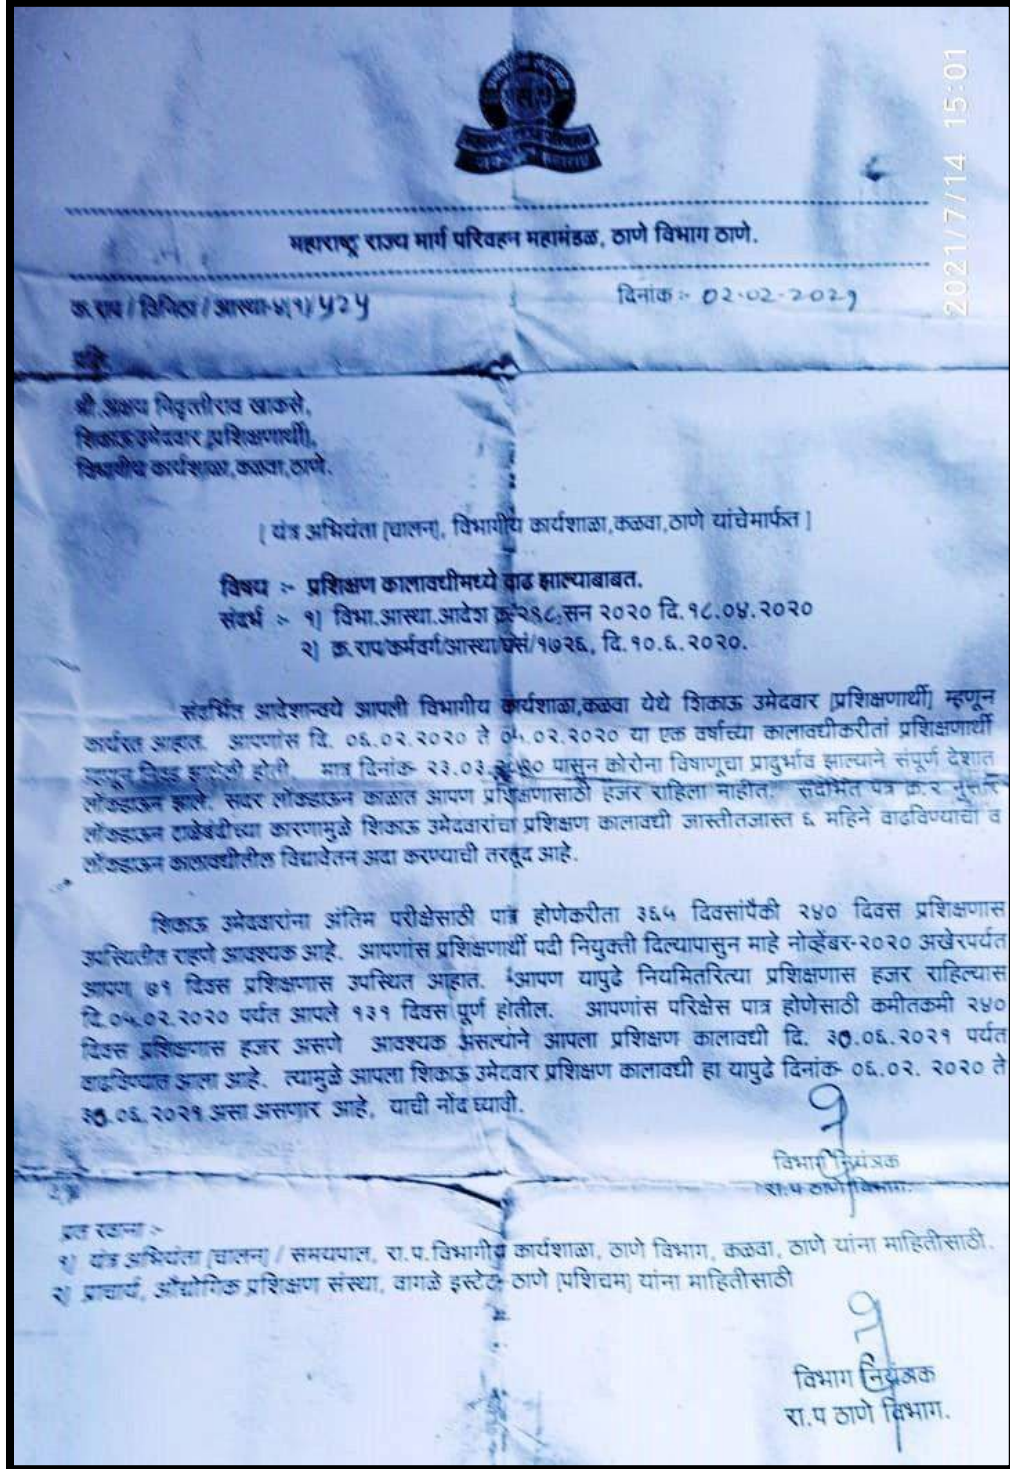 महाराष्ट्र राज्य मार्ग परिवहन महामंडळ, ठाणे विभाग ठाणे.
क्र.राप / विनिठा / आस्था-४(१)/ ५२५
दिनांक :- 02-02-2029
2021/7/14 15:01
प्रति,
श्री.अक्षय निवृत्तीराव खाकसे,
शिकाऊ उमेदवार [प्रशिक्षणार्थी],
विभागीय कार्यशाळा,कळवा,ठाणे.
[ यंत्र अभियंता [चालन], विभागीय कार्यशाळा,कळवा,ठाणे यांचेमार्फत ]
विषय :- प्रशिक्षण कालावधीमध्ये वाढ झाल्याबाबत.
संदर्भ :- १] विभा.आस्था.आदेश क्र.२९८,सन २०२० दि.१८.०४.२०२०
२] क्र.राप/कर्मवर्ग/आस्था/घसं/१७२६, दि.१०.६.२०२०.
संदर्भित आदेशान्वये आपली विभागीय कार्यशाळा,कळवा येथे शिकाऊ उमेदवार [प्रशिक्षणार्थी] म्हणून
कार्यरत आहात. आपणांस दि. ०६.०२.२०२० ते ०५.०२.२०२० या एक वर्षाच्या कालावधीकरीतां प्रशिक्षणार्थी
म्हणून निवड झालेली होती. मात्र दिनांक- २३.०३.२०२० पासून कोरोना विषाणूचा प्रादुर्भाव झाल्याने संपूर्ण देशात
लॉकडाऊन झाले. सदर लॉकडाऊन काळात आपण प्रशिक्षणासाठी हजर राहिला नाहीत. संदर्भित पत्र क्र.२ नुसार
लॉकडाऊन टाळेबंदीच्या कारणामुळे शिकाऊ उमेदवारांचा प्रशिक्षण कालावधी जास्तीतजास्त ६ महिने वाढविण्याची व
लॉकडाऊन कालावधीतील विद्यावेतन अदा करण्याची तरतूद आहे.
शिकाऊ उमेदवारांना अंतिम परीक्षेसाठी पात्र होणेकरीता ३६५ दिवसांपैकी २४० दिवस प्रशिक्षणास
उपस्थितीत राहणे आवश्यक आहे. आपणांस प्रशिक्षणार्थी पदी नियुक्ती दिल्यापासुन माहे नोव्हेंबर-२०२० अखेरपर्यंत
आपण ७१ दिवस प्रशिक्षणास उपस्थित आहात. आपण यापुढे नियमितरित्या प्रशिक्षणास हजर राहिल्यास
दि.०५.०२.२०२० पर्यंत आपले १३१ दिवस पूर्ण होतील. आपणांस परिक्षेस पात्र होणेसाठी कमीतकमी २४०
दिवस प्रशिक्षणास हजर असणे आवश्यक असल्याने आपला प्रशिक्षण कालावधी दि. ३०.०६.२०२१ पर्यंत
वाढविण्यात आला आहे. त्यामुळे आपला शिकाऊ उमेदवार प्रशिक्षण कालावधी हा यापुढे दिनांक- ०६.०२. २०२० ते
३०.०६.२०२१ असा असणार आहे, याची नोंद घ्यावी.
विभाग नियंत्रक
रा.प ठाणे विभाग.
प्रत रवाना :-
१] यंत्र अभियंता [चालन] / समयपाल, रा.प.विभागीय कार्यशाळा, ठाणे विभाग, कळवा, ठाणे यांना माहितीसाठी.
२] प्राचार्य, औद्योगिक प्रशिक्षण संस्था, वागळे इस्टेट- ठाणे [पशिचम] यांना माहितीसाठी
विभाग नियंत्रक
रा.प ठाणे विभाग.